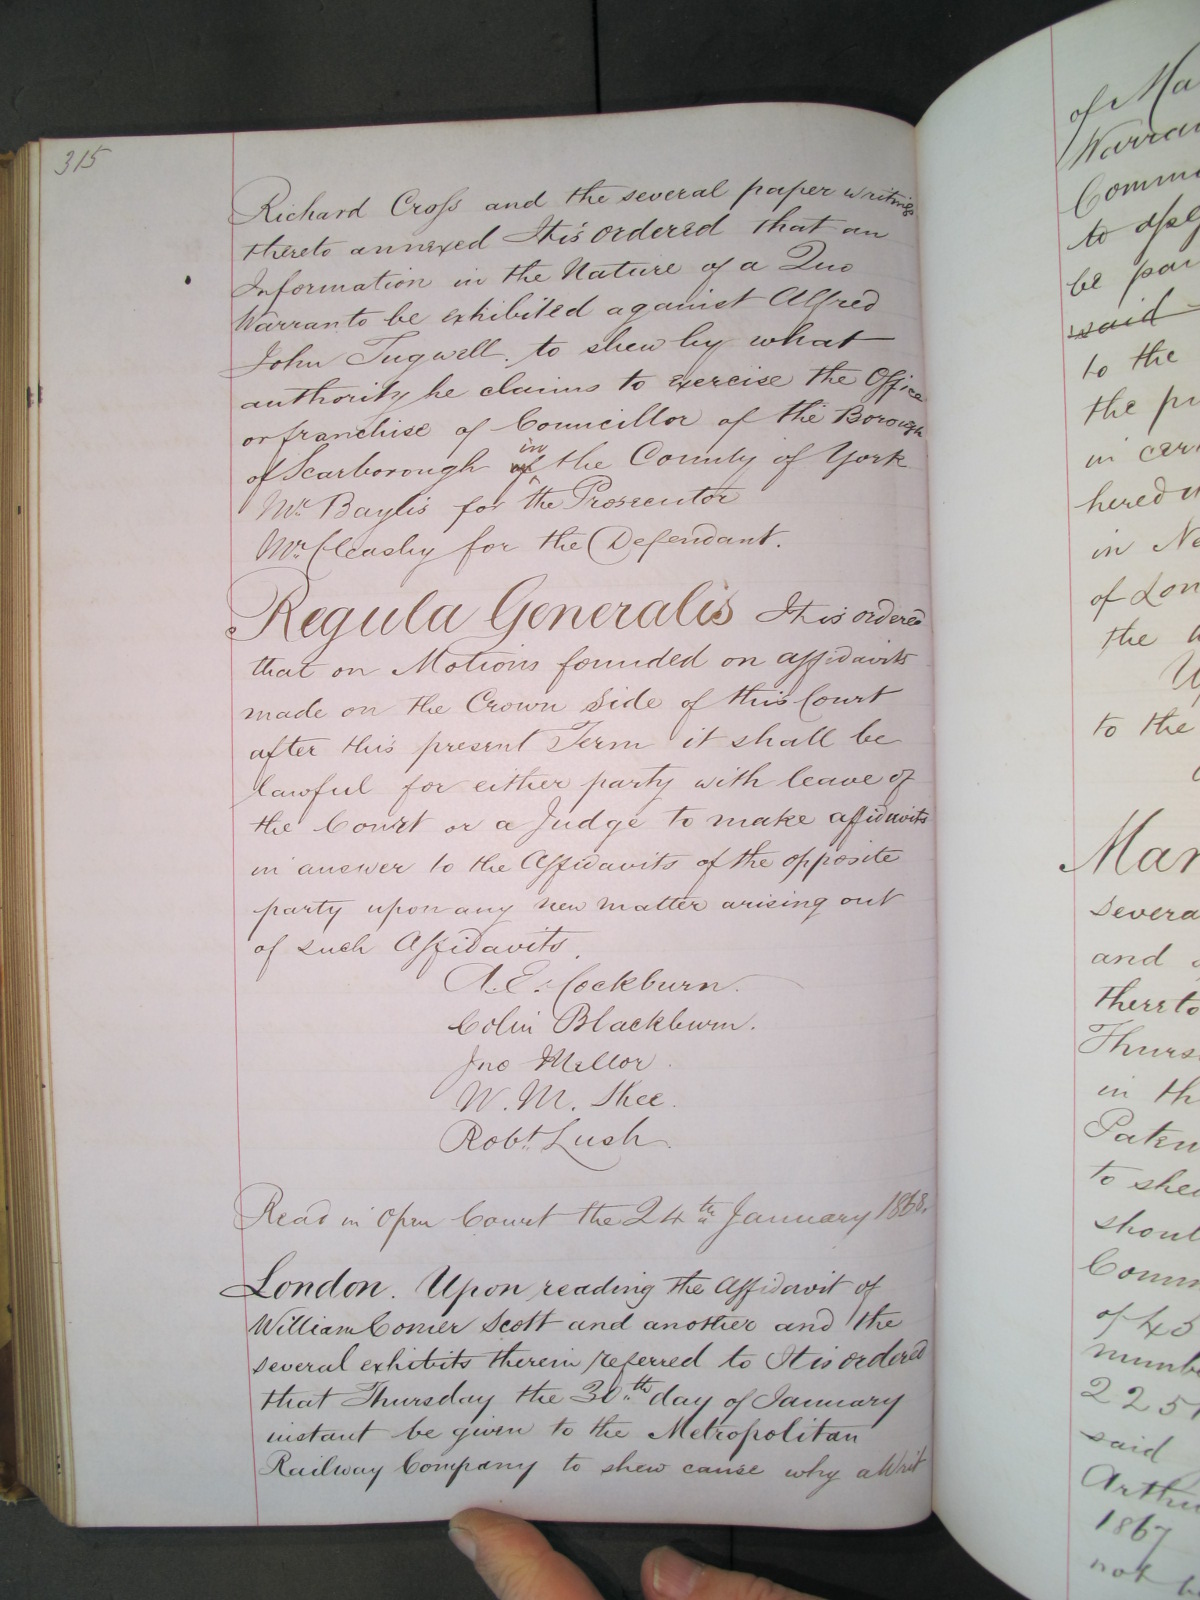 315
Richard Cross and the several paper writings
thereto annexed It is ordered that an
Information in the Nature of a Quo
Warranto be exhibited against Alfred
John Tugwell to shew by what
authority he claims to exercise the Office
or franchise of Councillor of the Borough
of Scarborough in the County of York
Mr. Baylis for the Prosecutor
Mr. Cleasby for the Defendant.
Regula Generalis It is ordered
that on Motions founded on affidavits
made on the Crown Side of this Court
after this present Term it shall be
lawful for either party with leave of
the Court or a Judge to make affidavits
in answer to the Affidavits of the opposite
party upon any new matter arising out
of such Affidavits.
A. E. Cockburn.
Colin Blackburn.
Jno Mellor.
W. M. Shee.
Robt. Lush.
Read in Open Court the 24th January 1868.
London. Upon reading the Affidavit of
William Scott and another and the
several exhibits therein referred to It is ordered
that Thursday the 30th day of January
instant be given to the Metropolitan
Railway Company to shew cause why a Writ
of
Warran
to
be
said
to the
the
in
in
of Lon
the
to the
Man
Severa
and
thereto
Thurs
in th
Paten
to shew
shoul
Comm
of 45
numbe
225
said
Arthu
1867
not be